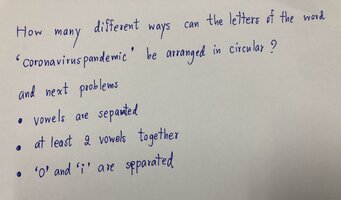 How many different ways can the letters of the word
'coronaviruspandemic' be arranged in circular ?
and next problems
• vowels are separated
• at least 2 vowels together
• 'o' and 'i' are separated